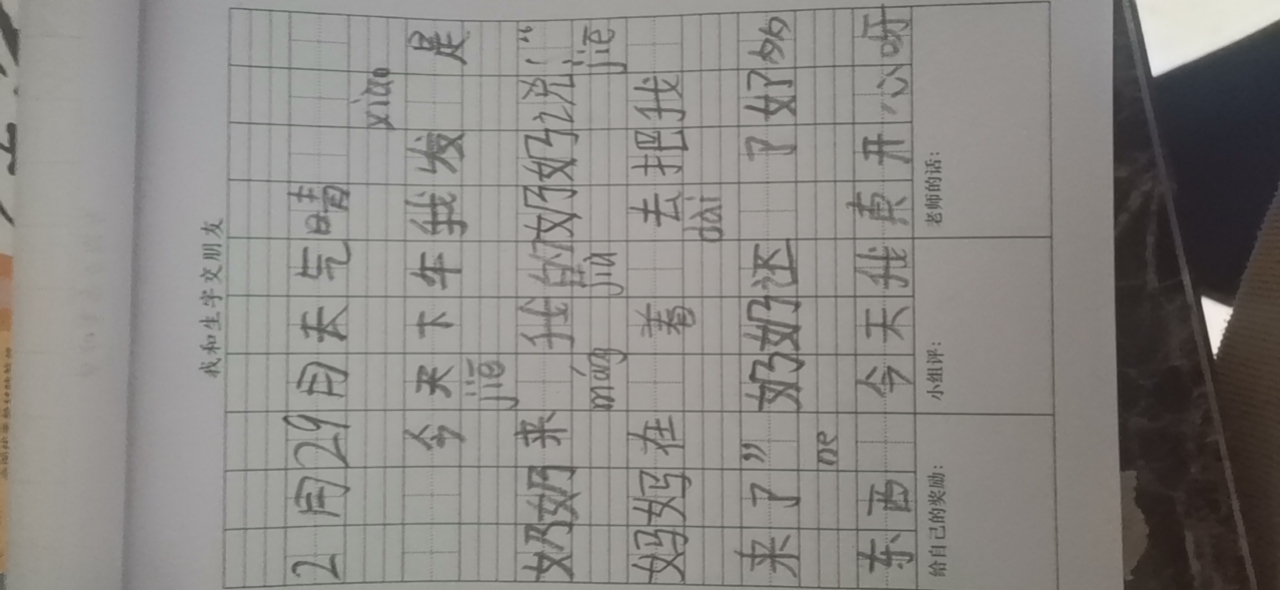 我和生字交朋友
2月29日天气晴
xiào
今天下午我发 是
jiē
奶奶来 我的奶奶说:“
máng jiā jiē
妈妈在 着 去把我
dài
来了” 奶奶还 了好多
东西 今天我真开心呀
给自己的奖励: 小组评: 老师的话: